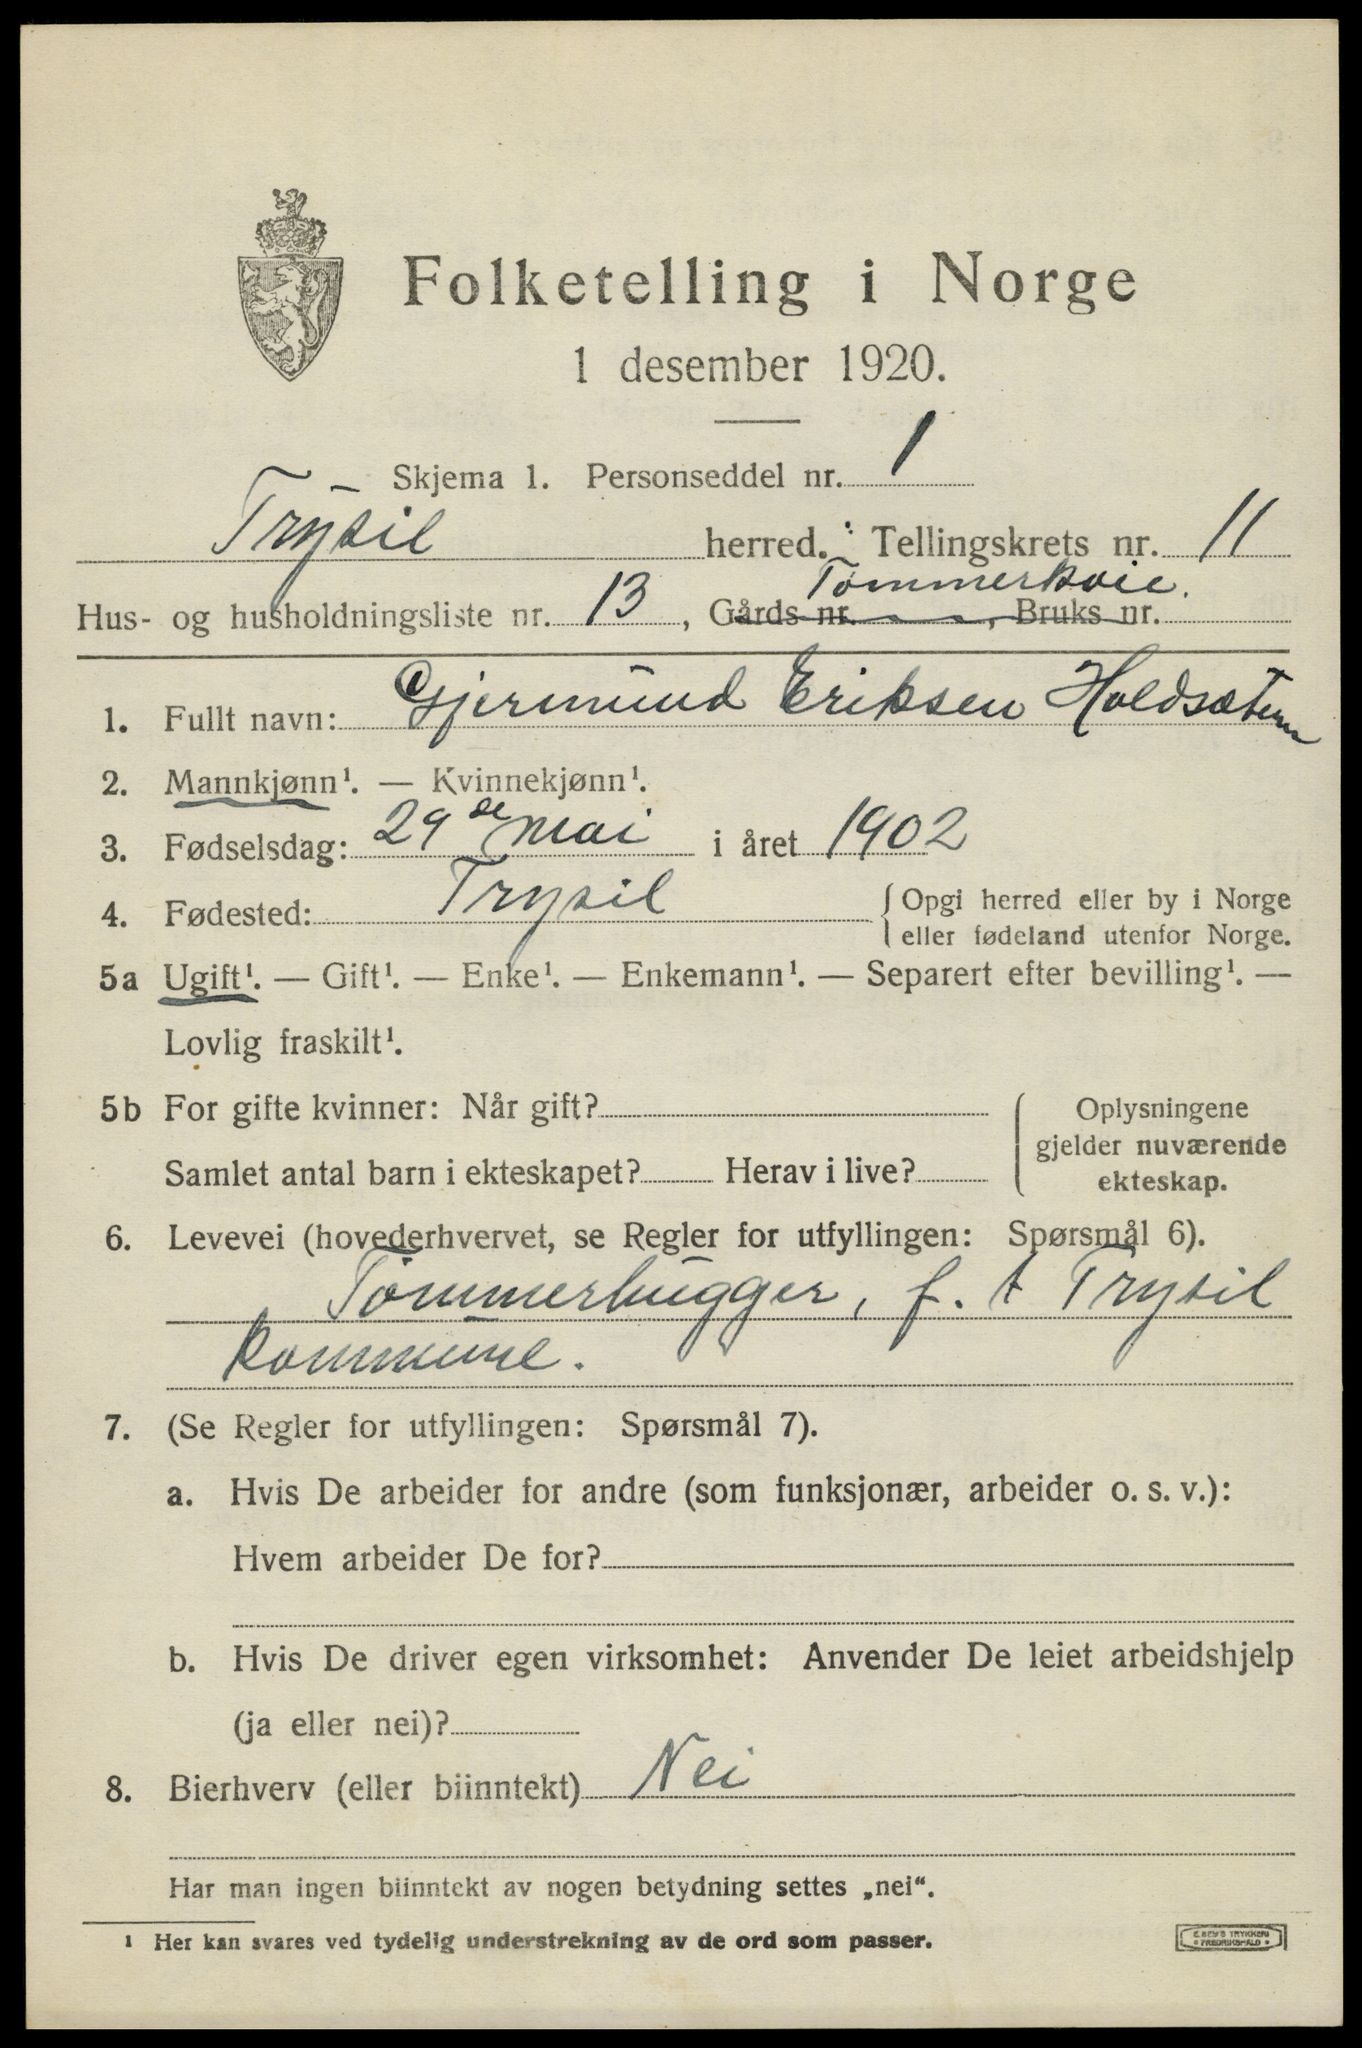 Folketelling i Norge
1 desember 1920.
Skjema 1. Personseddel nr. 1
Trysil herred. Tellingskrets nr. 11
Tømmerkoie.
Hus- og husholdningsliste nr. 13, Gårds nr. , Bruks nr.
1. Fullt navn: Gjermund Eriksen Holdsætern
2. Mannkjønn¹. — Kvinnekjønn¹.
3. Fødselsdag: 29de mai i året 1902
4. Fødested: Trysil {Opgi herred eller by i Norge
eller fødeland utenfor Norge.
5a Ugift¹. — Gift¹. — Enke¹. — Enkemann¹. — Separert efter bevilling¹. —
Lovlig fraskilt¹.
5b For gifte kvinner: Når gift? Oplysningene
gjelder nuværende
Samlet antal barn i ekteskapet? Herav i live? ekteskap.
6. Levevei (hovederhvervet, se Regler for utfyllingen: Spørsmål 6).
Tømmerhugger, f. t Trysil
kommune.
7. (Se Regler for utfyllingen: Spørsmål 7).
a. Hvis De arbeider for andre (som funksjonær, arbeider o. s. v.):
Hvem arbeider De for?
b. Hvis De driver egen virksomhet: Anvender De leiet arbeidshjelp
(ja eller nei)?
8. Bierhverv (eller biinntekt) Nei
Har man ingen biinntekt av nogen betydning settes „nei“.
¹ Her kan svares ved tydelig understrekning av de ord som passer.
E. SEM'S TRYKKERI
• FREDRIKSHALD •